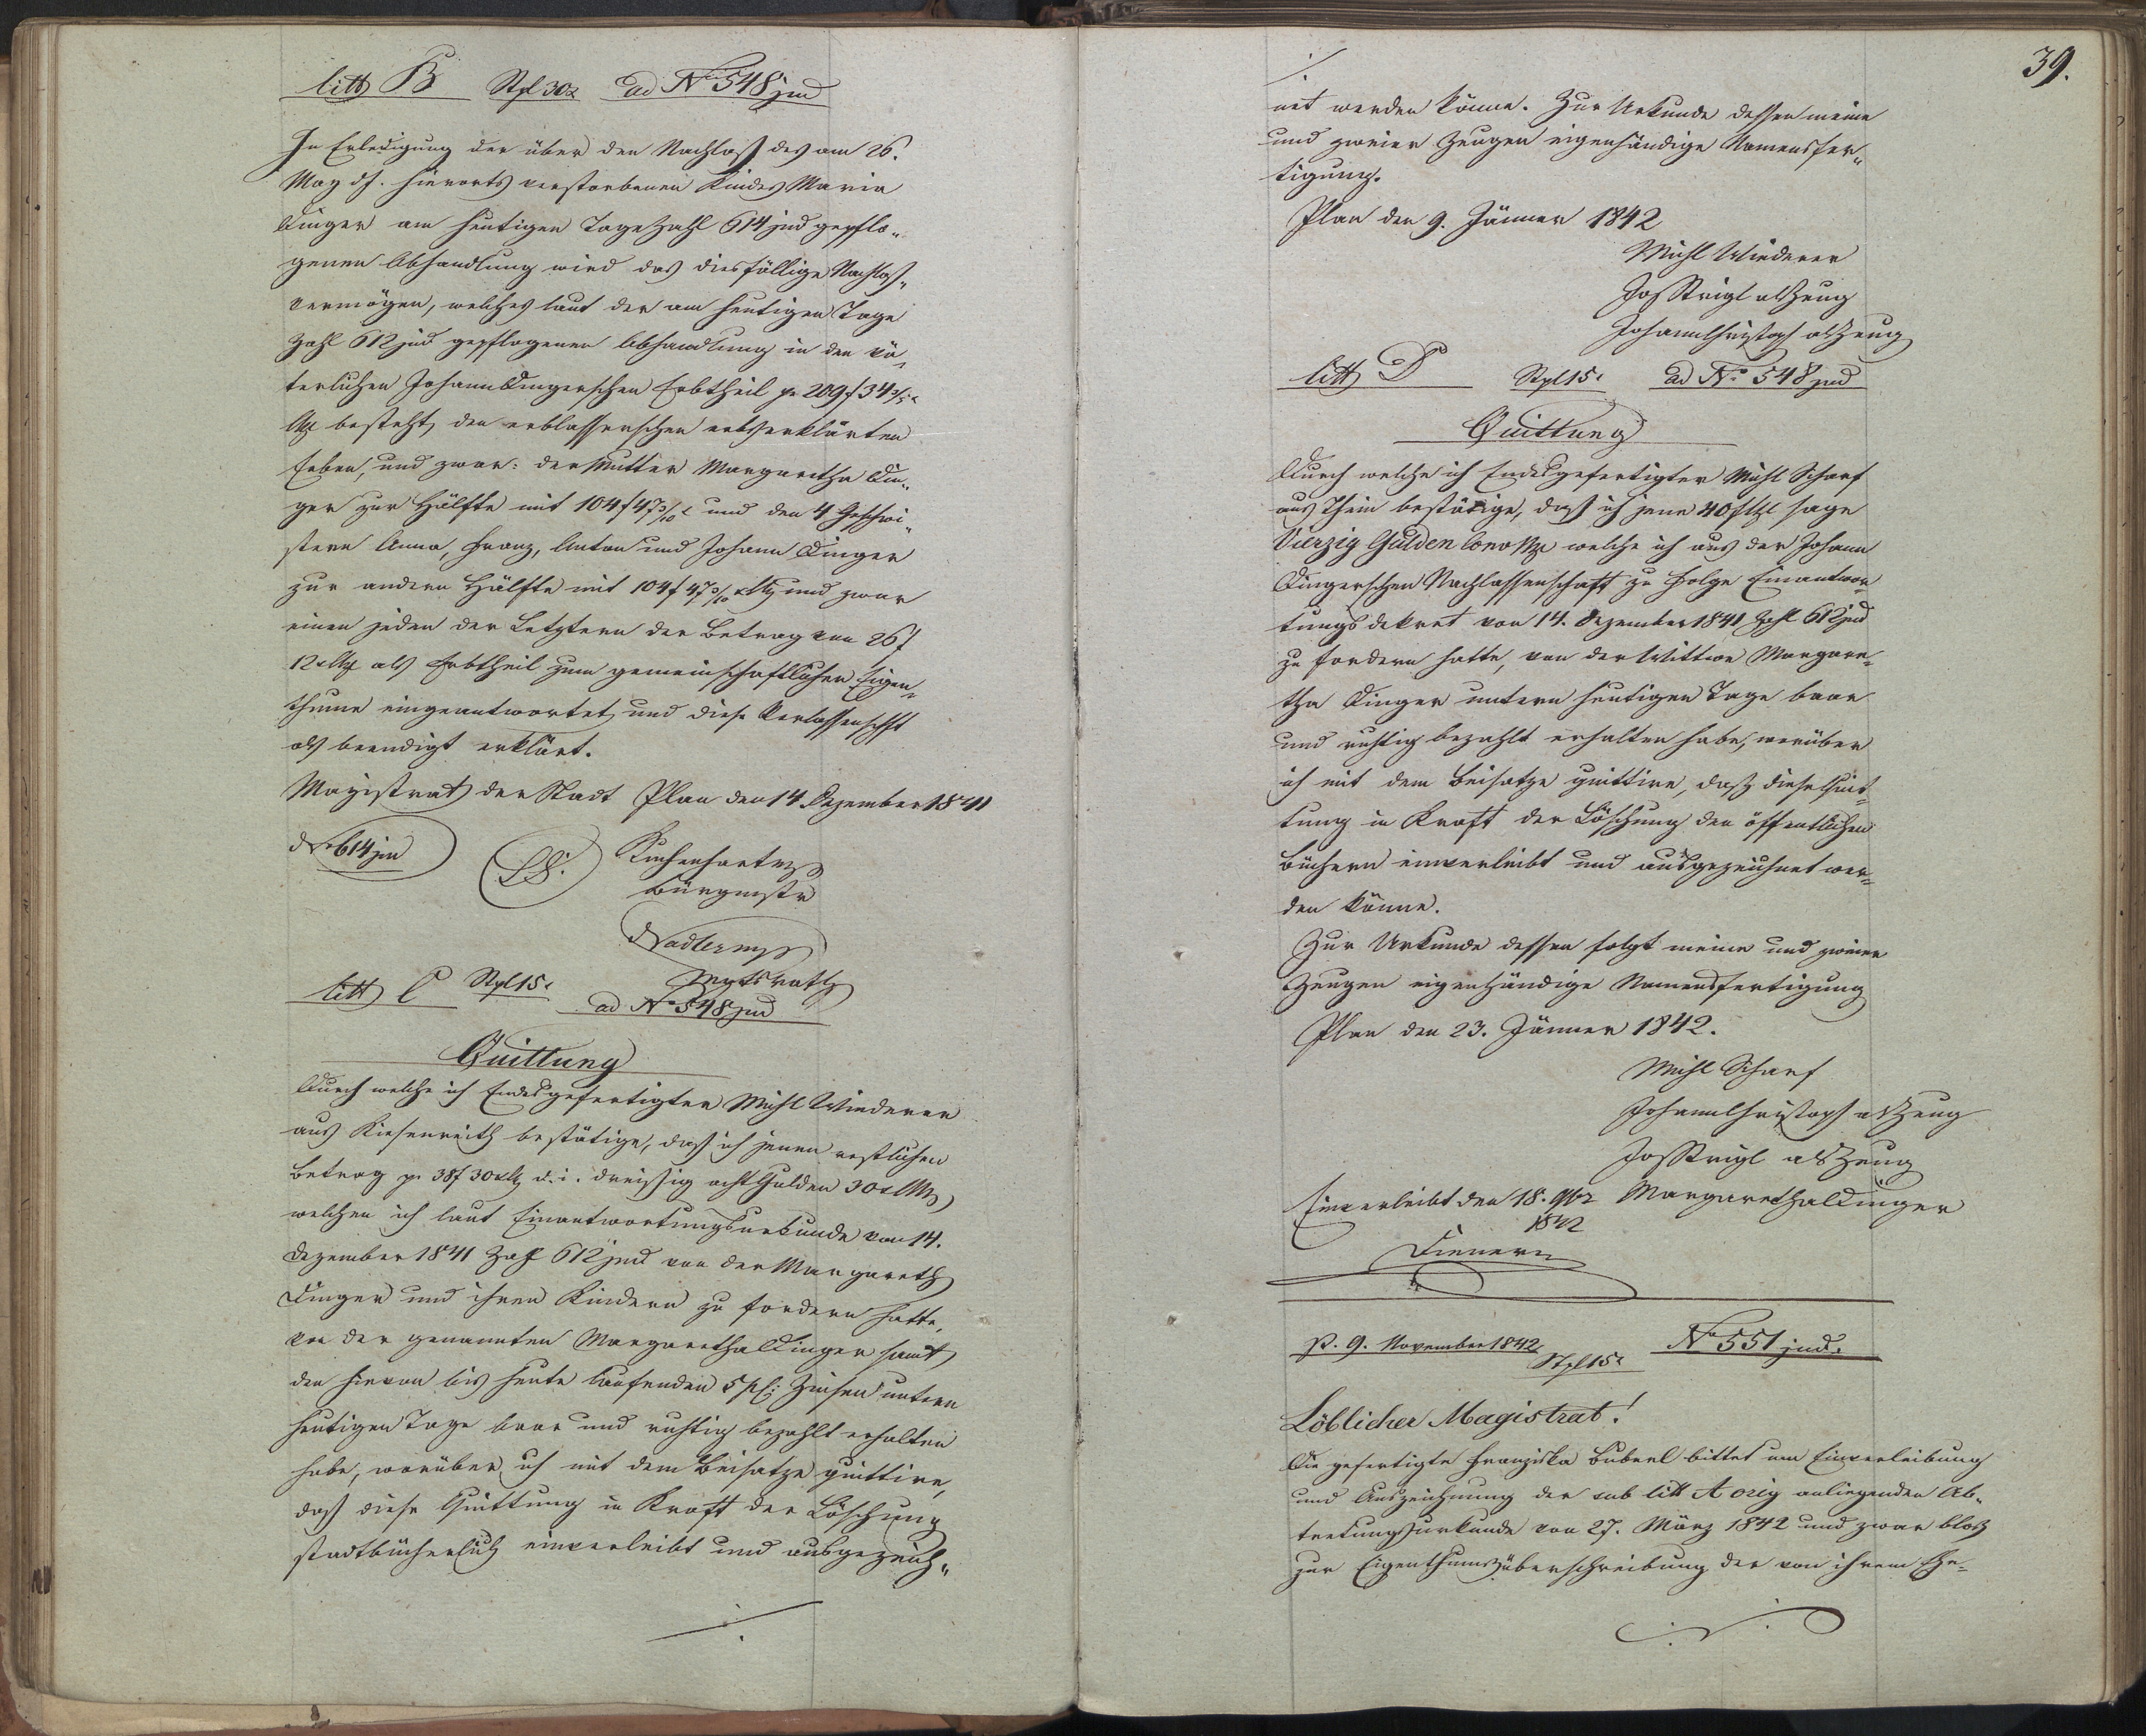 litt B Stpl 30x ad No 548 jud
In Erledigung der über den Nachlaß des am 26.
May dJ. hierorts verstorbenen Kindes Maria
Dinger am heutigen Tage Zahl 614 jud gepflo„
genen Abhandlung wird das diesfällige Nachlaß„
vermögen, welches laut der am heutigen Tage
Zahl 612 jud gepflogenen Abhandlung in den vä„
terlichen Johann Dingerschen Erbtheil pr 209 f 34 3/5 x
CMz besteht, den erblasserschen erbserklärten
Erben, und zwar: der Mutter Margaretha Din„
ger zur Hälfte mit 104 f 47 3/10 x und den 4 Geschwi„
stern Anna, Franz, Anton und Johann Dinger
zur andern Hälfte mit 104 f 47 3/10 x CMz und zwar
einen jeden der Letztern der Betrag von 26 f
12 x CMz als Erbtheil zum gemeinschaftlichen Eigen„
thume eingeantwortet, und diese Verlassenschft
als beendigt erklärt.
Magistrat der Stadt Plan den 14. Dezember 1841
No 614 jud
LS. Kuchenhartz
Bürgmstr
Nadlermp
Mgtsrath
litt C Stpl 15x
ad No 548 jud
Quittung
Durch welche ich Endesgefertigter Michl Wiederer
aus Kiesenreith bestätige, daß ich jenen restlichen
Betrag pr 38 f 30 x CMz d. i. dreißig acht Gulden 30 x CMz,
welchen ich laut Einantwortungsurkunde von 14.
Dezember 1841 Zahl 612 jud von der Margareth
Dinger und ihren Kindern zu fordern hatte,
von der genannten Margaretha Dinger samt
den hievon bis heute laufenden 5 pC: Zinsen untern
heutigen Tage baar und richtig bezahlt erhalten
habe, worüber ich mit dem Beisatze quittire,
daß diese Quittung in Kraft der Löschung
stadtbücherlich einverleibt und ausgezeich„
./.
39.
./.
net werden könne. Zur Urkunde dessen meine
und zweier Zeugen eigenhändige Namensfer„
tigung.
Plan den 9. Jänner 1842
Michl Wiederer
Jos Strigl als Zeug
Johann Christoph als Zeug
litt D Stpl 15x ad No 548 jud
Quittung
Durch welche ich Endesgefertigter Michl Scharf
aus Thein bestätige, daß ich jene 40 f CMz sage
Vierzig Gulden Conv Mze welche ich aus der Johann
Dingerschen Nachlassenschaft zu Folge Einantwor„
tungsdekret von 14. Dezember 1841 Zahl 612 jud
zu fordern hatte, von der Wittwe Margare„
tha Dinger untern heutigen Tage baar
und richtig bezahlt erhalten habe, worüber
ich mit dem Beisatze quittire, daß diese Quit„
tung in Kraft der Löschung den öffentlichen
Büchern einverleibt und ausgezeichnet wer„
den könne.
Zur Urkunde dessen folgt meine und zweier
Zeugen eigenhändige Namensfertigung
Plan den 23. Jänner 1842.
Michl Scharf
Johann Christoph als Zeug
Jos Strigl als Zeug
Einverleibt den 18. 9br Margaretha Dinger
1842
Dienerm
p. 9. November 1842 Stpl 15x No 551 jud.
Löblicher Magistrat!
Die gefertigte Franziska Buberl bittet um Einverleibung
und Auszeichnung der sub litt A orig anliegenden Ab„
tretungsurkunde von 27. März 1842 und zwar bloß
zur Eigenthumsüberschreibung der von ihrem Ehe-
./.